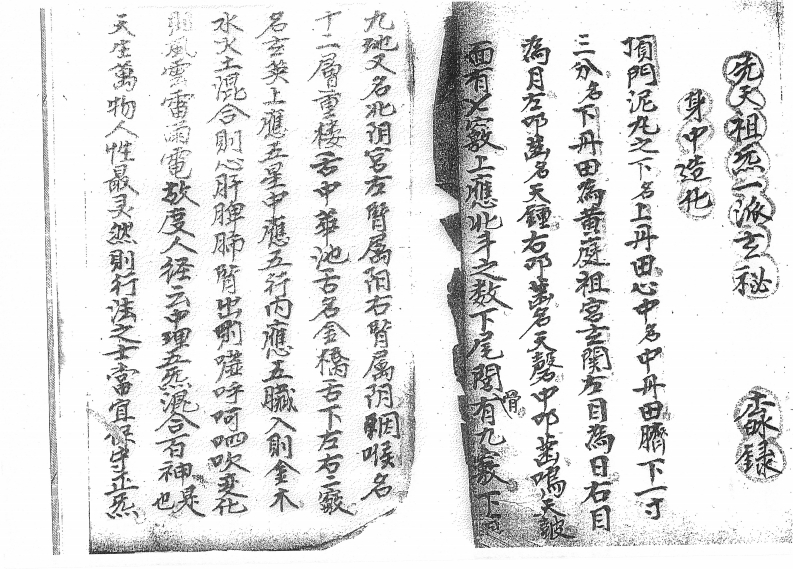 先天祖炁一派玄秘
録
身中造化
頂門泥丸之下名上丹田心中名中丹田臍下一寸
三分名下丹田為黄庭祖宮玄関左目為日右目
為月左叩齒名天鍾右叩齒名天磬中叩齒鳴天皷
面有七竅上應北斗之数下尾閭骨有九竅下
九地又名北阴宮左腎属阳右腎属阴咽喉名
十二層重楼舌中華池舌名金橋舌下左右二竅
名玄英上應五星中應五行内應五臟入則金木
水火土混合則心肝脾肺腎出則噓呼呵呬吹变化
風雲雷雨電故度人经云中理五炁混合百神是也
天生萬物人性最灵然則行法之士當宜保守正炁